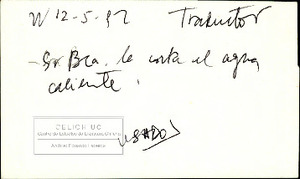 W 12-5-92 Traductor
- Sr Bca. le corta el agua
caliente.
CELICH UC
Centro de Estudios de Literatura Chilena
USADO